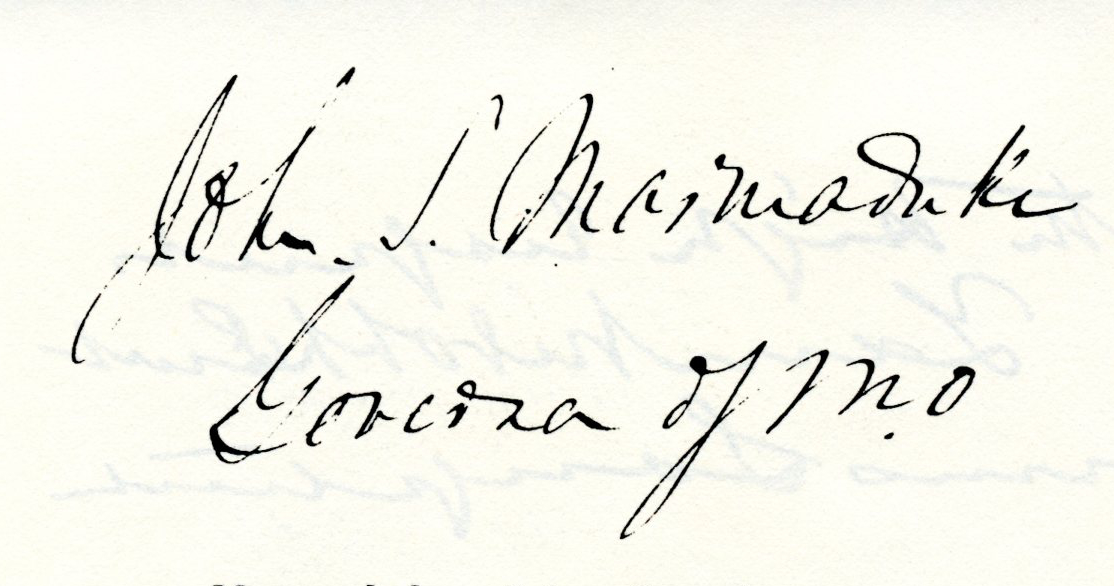 John. S. Marmaduke
Governor of M.O